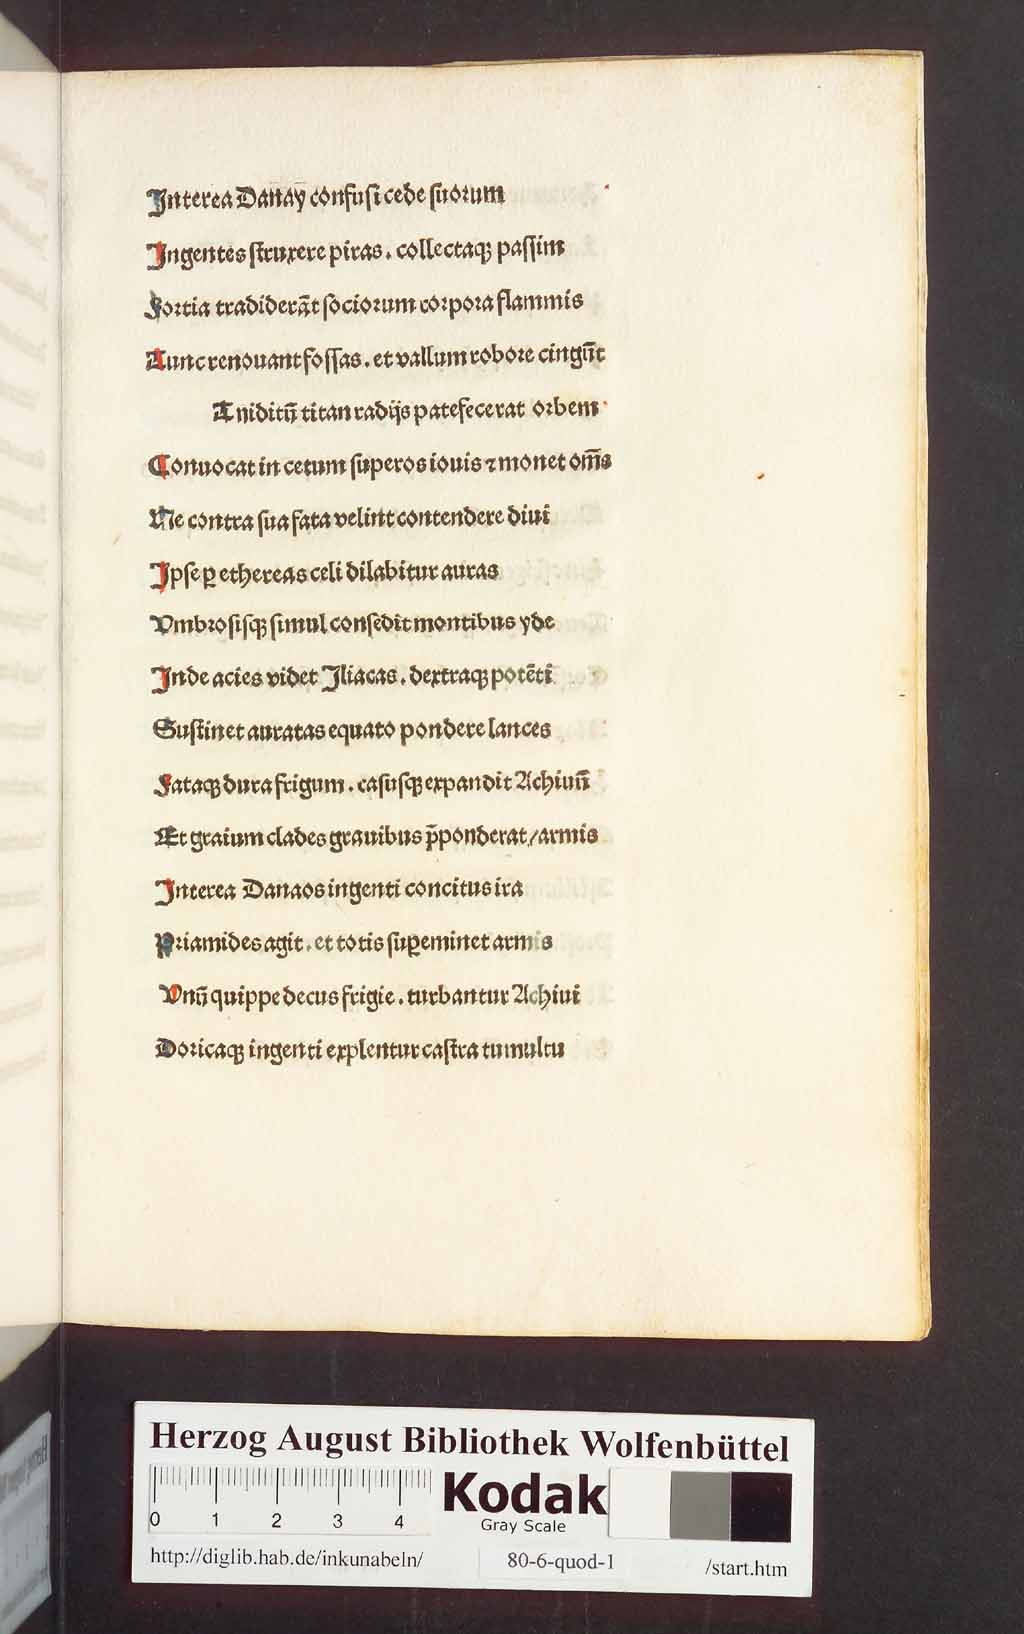 Interea Danaÿ confusi cede suorum
Ingentes struxere piras . collectaqꝫ passim
Fortia tradiderāt sociorum corpora flammis
Tunc renouant fossas . et vallum robore cingūt
At niditū titan radijs patefecerat orbem
Conuocat in cetum superos iouis ⁊ monet om̄s
Ne contra sua fata velint contendere diui
Ipse ꝑ ethereas celi dilabitur auras
Vmbrosisqꝫ simul consedit montibus yde
Inde acies videt Iliacas . dextraqꝫ potēti
Sustinet auratas equato pondere lances
Fataqꝫ dura frigum . casusqꝫ expandit Achiuū
Et graium clades grauibus p̄ponderat / armis
Interea Danaos ingenti concitus ira
Priamides agit . et totis suꝑeminet armis
Vnū quippe decus frigie . turbantur Achiui
Doricaqꝫ ingenti explentur castra tumultu
Herzog August Bibliothek Wolfenbüttel
0 1 2 3 4
Kodak
Gray Scale
http://diglib.hab.de/inkunabeln/ 80-6-quod-1 /start.htm